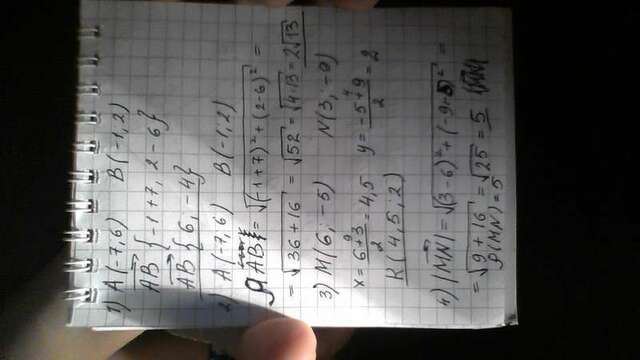 1) A(-7,6) B(-1,2)
AB {-1+7, 2-6}
AB {6, -4}
2) A(-7,6) B(-1,2)
AB = √(-1+7)²+(2-6)² =
= √36+16 = √52 = √4·13 = 2√13
3) M(6, -5) N(3, -9)
x = 6+3/2 = 4,5 y = -5+9/2 = 2
K(4,5; 2)
4) |MN| = √(3-6)²+(-9+5)² =
= √9+16 = √25 = 5
ρ(MN) = 5